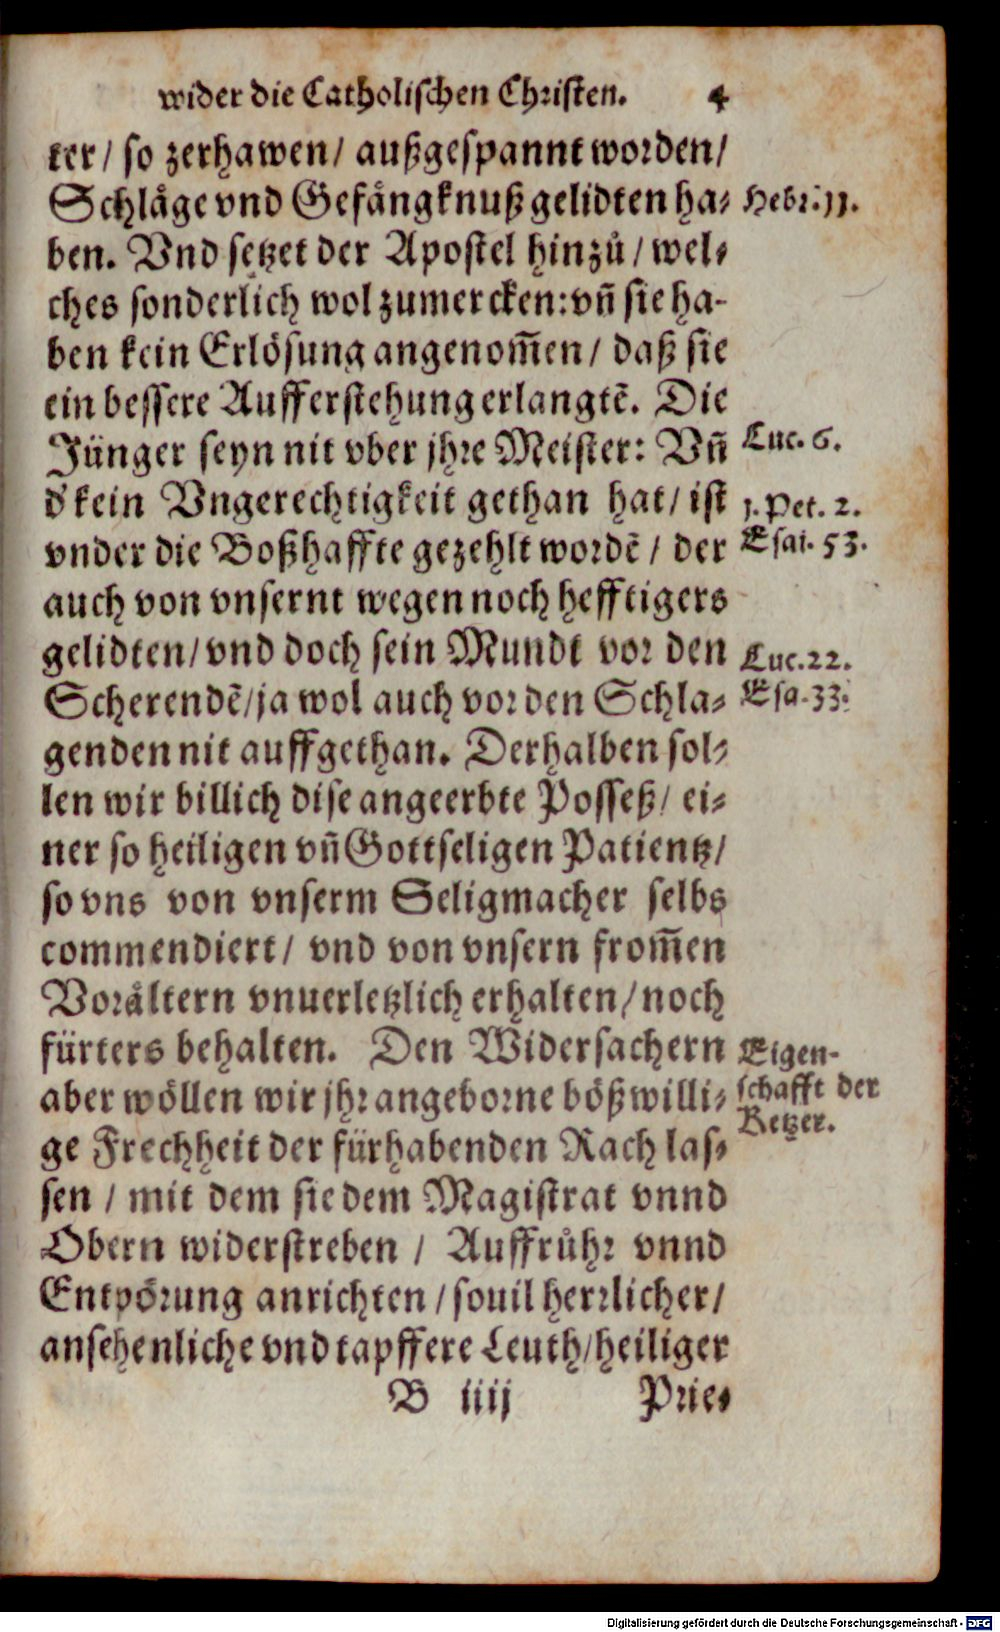 wider die Catholischen Christen. 4
ter/ so zerhawen/ außgespannt worden/
Schlåge vnd Gefångknuß gelidten ha-
Hebr. 11.
ben. Vnd setzet der Apostel hinzů/ wel-
ches sonderlich wol zumercken: vñ sie ha-
ben kein Erlösung angenom̃en/ daß sie
ein bessere Aufferstehung erlangtẽ. Die
Jünger seyn nit vber jhre Meister: Vñ
Luc. 6.
d' kein Vngerechtigkeit gethan hat/ ist
1. Pet. 2.
vnder die Boßhaffte gezehlt wordẽ/ der
Esai. 53.
auch von vnsernt wegen noch hefftigers
gelidten/ vnd doch sein Mundt vor den
Luc. 22.
Scherendẽ/ ja wol auch vor den Schla-
Esa. 33.
genden nit auffgethan. Derhalben sol-
len wir billich dise angeerbte Posseß/ ei-
ner so heiligen vñ Gottseligen Patientz/
so vns von vnserm Seligmacher selbs
commendiert/ vnd von vnsern from̃en
Voråltern vnuerletzlich erhalten/ noch
fürters behalten. Den Widersachern
Eigen-
schafft der
Ketzer.
aber wöllen wir jhr angeborne bößwilli-
ge Frechheit der fürhabenden Rach las-
sen/ mit dem sie dem Magistrat vnnd
Obern widerstreben/ Auffrůhr vnnd
Entpörung anrichten/ souil herrlicher/
ansehenliche vnd tapffere Leuth/ heiliger
B iiij Prie-
Digitalisierung gefördert durch die Deutsche Forschungsgemeinschaft - DFG